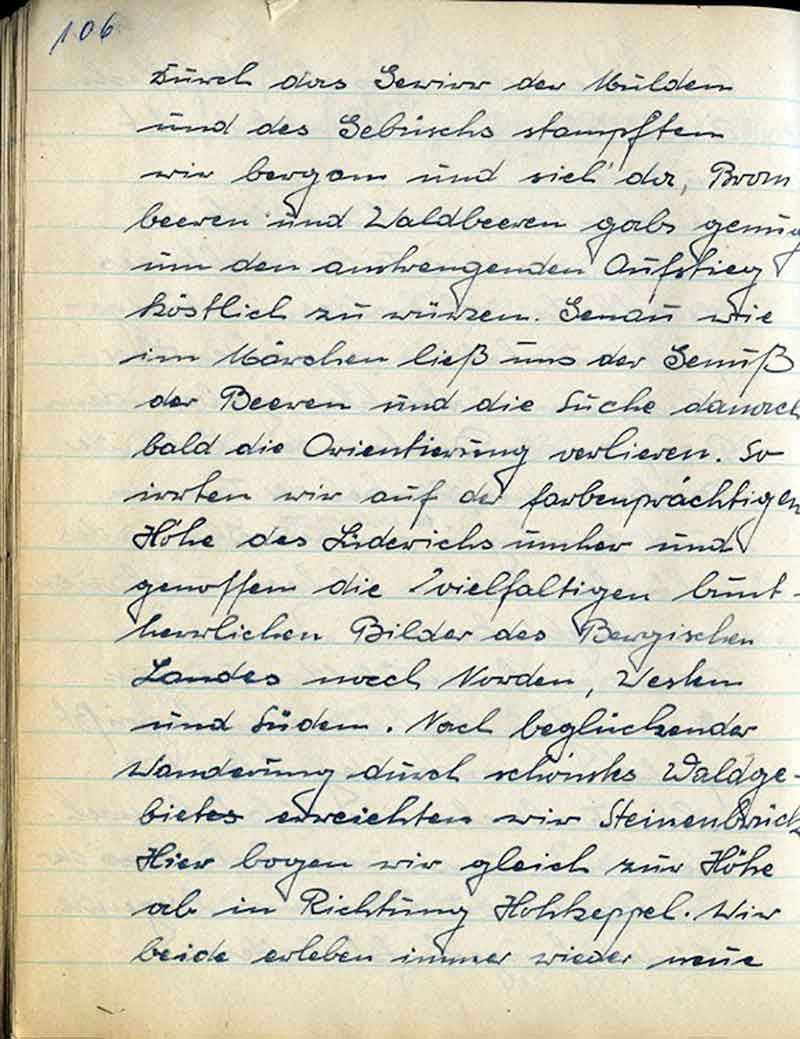 106
Durch das Gewirr der Mulden
und des Gebüschs stampften
wir bergan und sieh' da, Brom
beeren und Waldbeeren gabs genug
um den anstrengenden Aufstieg
köstlich zu würzen. Genau wie
im Märchen ließ uns der Genuß
der Beeren und die Suche danach
bald die Orientierung verlieren. So
irrten wir auf der farbenprächtigen
Höhe des Lüderichs umher und
genossen die vielfältigen bunt-
herrlichen Bilder des Bergischen
Landes nach Norden, Westen
und Süden. Nach beglückender
Wanderung durch schönstes Waldge-
bietes erreichten wir Steinenbrück
Hier bogen wir gleich zur Höhe
ab in Richtung Hohkeppel. Wir
beide erleben immer wieder neue